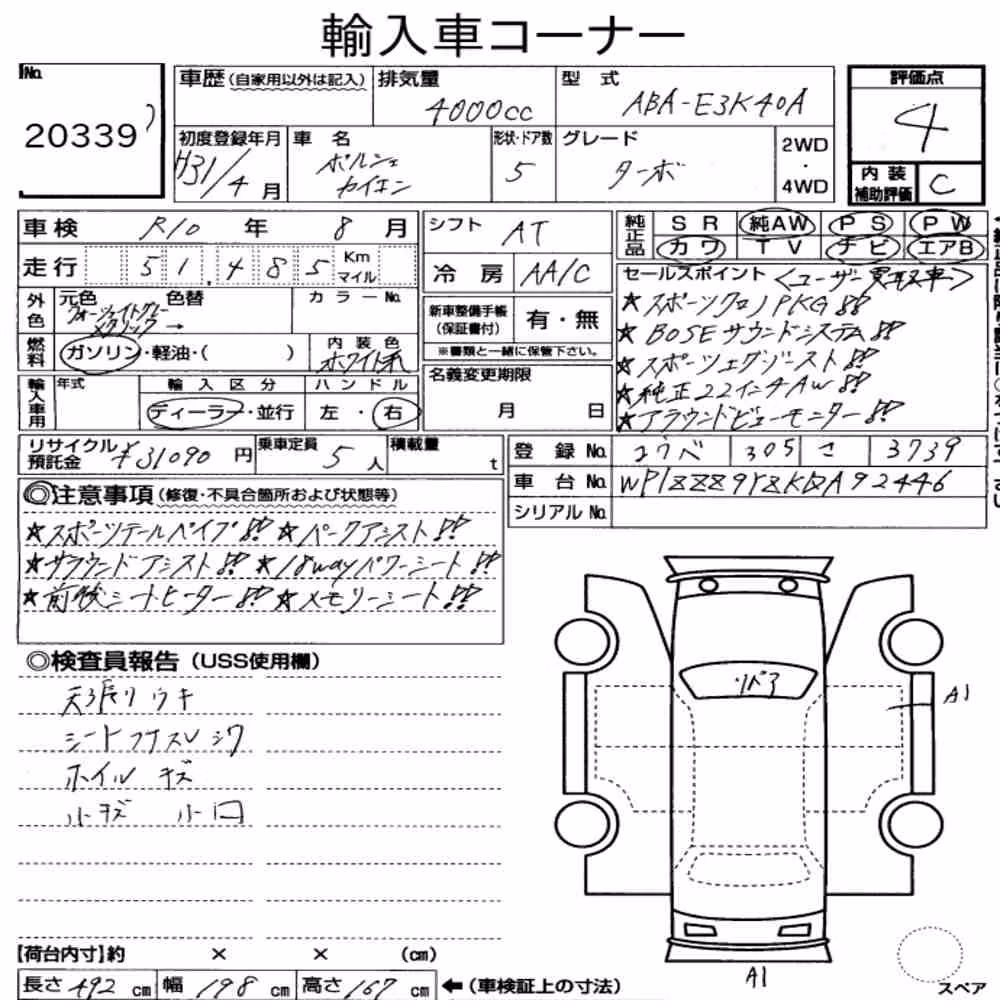 輸入車コーナー
No.
20339
車歴(自家用以外は記入)
排気量
4000cc
型 式
ABA-E3K40A
評価点
4
初度登録年月
H31/4月
車 名
ポルシェ
カイエン
形状・ドア数
5
グレード
ターボ
2WD
・
4WD
内 装
補助評価
C
車検 R10 年 8 月
走行 51,485 Km
マイル
シフト AT
冷 房 AA/C
純正品 SR 純AW PS PW
カワ TV ナビ エアB
外色
元色 色替
カラーNo.
クォーツァイトグレー
メタリック→
燃料
ガソリン・軽油・( )
内 装 色
ホワイト系
新車整備手帳
(保証書付)
有・無
※書類と一緒に保管下さい。
セールスポイント <ユーザー買取車>
★スポーツクロノPKG!!
★BOSEサウンドシステム!!
★スポーツエグゾースト!!
★純正22インチAW!!
★アラウンドビューモニター!!
輸入車用
年式
輸 入 区 分
ディーラー・並行
ハ ン ド ル
左 ・ 右
名義変更期限
月 日
リサイクル
預託金
¥31090 円
乗車定員
5 人
積載量
t
登 録 No. コウベ 305 さ 3739
車 台 No. WP1ZZZ9YZKDA92446
シリアル No.
◎注意事項(修復・不具合箇所および状態等)
★スポーツテールパイプ!! ★パークアシスト!!
★サラウンドアシスト!! ★18wayパワーシート!!
★前後シートヒーター!! ★メモリーシート!!
◎検査員報告(USS使用欄)
天張り ウキ
シート フナスレ シワ
ホイル キズ
小キズ 小凹
リペア
A1
A1
【荷台内寸】約 × × (cm)
長さ 492 cm 幅 198 cm 高さ 167 cm ←(車検証上の寸法)
スペア